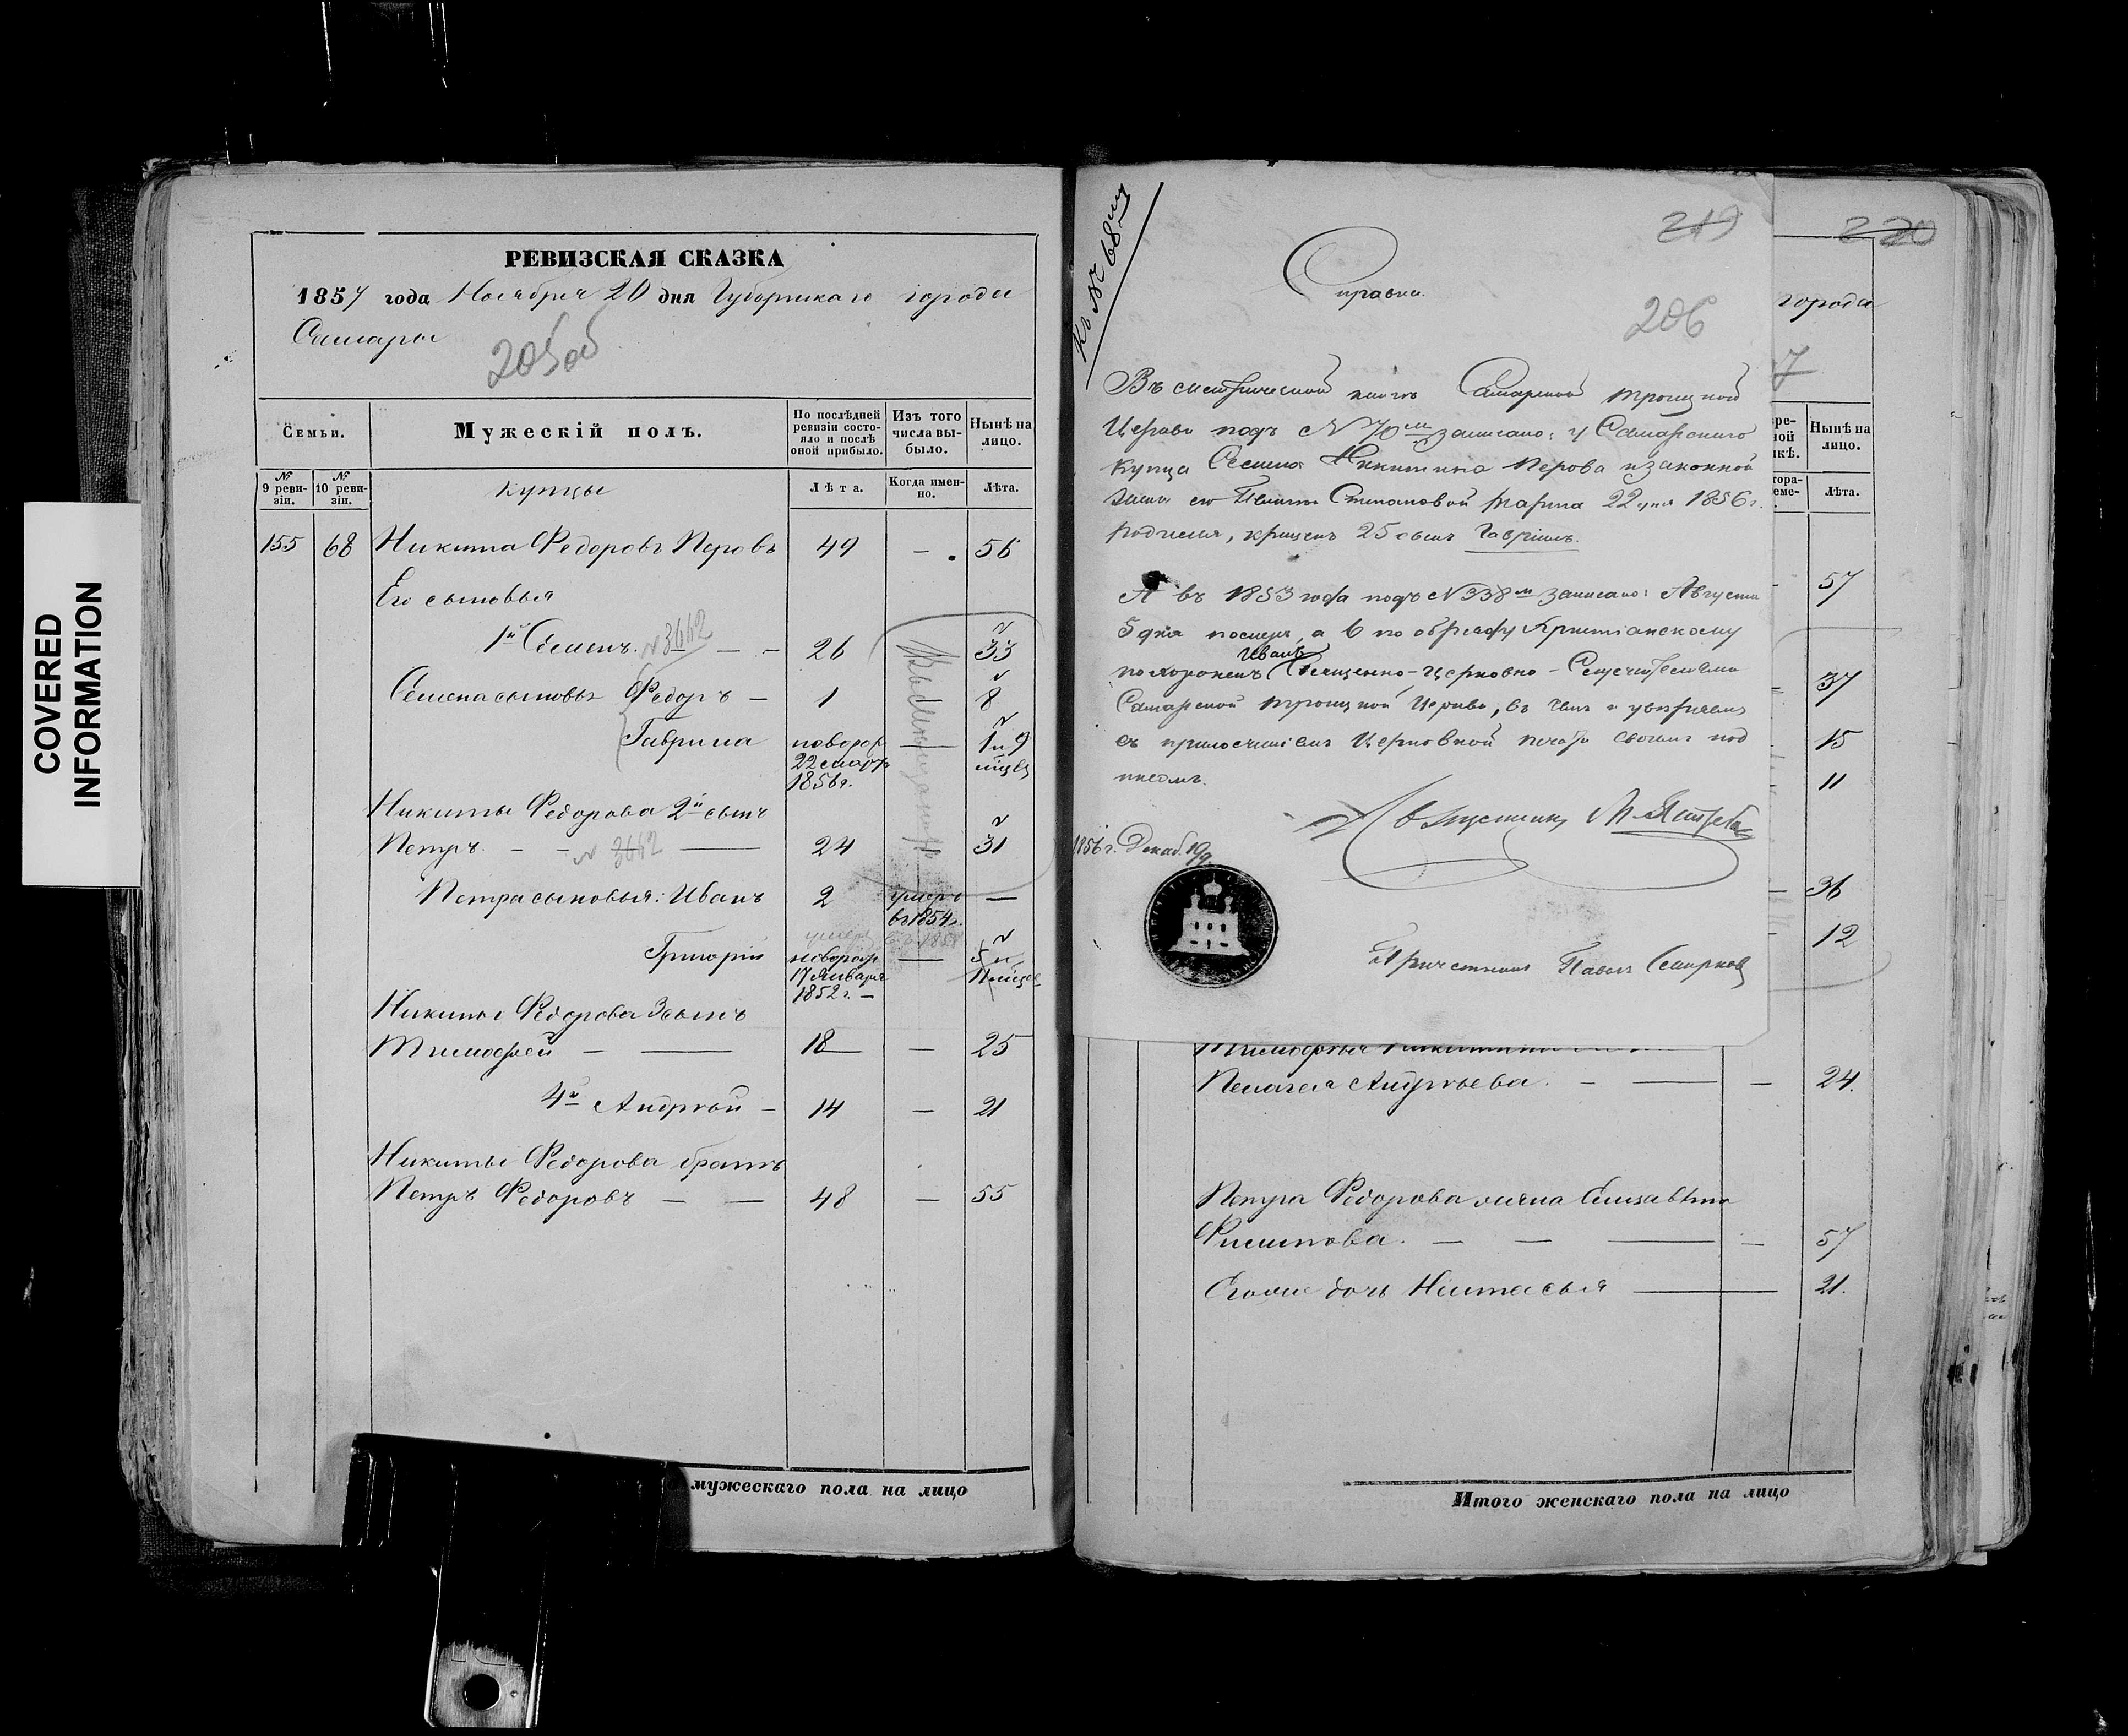 COVERED
INFORMATION
РЕВИЗСКАЯ СКАЗКА
1857 года Ноября 20 дня Губернскаго города
Самары
205об
Семьи.
Мужескій полъ.
По послѣдней ревизіи состояло и послѣ оной прибыло.
Изъ того числа выбыло.
Нынѣ на лицо.
№ 9 ревизіи.
№ 10 ревизіи.
купцы
Лѣта.
Когда именно.
Лѣта.
155 68 Никита Федоровъ Перовъ 49 — 56
Его сыновья
1й Семенъ. N 3642 — - 26 33
Семена сыновья Федоръ — 1 8
Гаврила новорож 22 марта 1856 г. — 1 и 9 мѣц
Никиты Федорова 2й сынъ
Петръ. - - N 3642 — 24 31
Петра сыновья: Иванъ 2 умеръ въ 1854 г. —
Григорій новорож 17 Января 1852 г. — — 5 и
Никиты Федорова 3 сынъ
Тимофей - — 18 — 25
4й Андрей - 14 — 21
Никиты Федорова братъ
Петръ Федоровъ — — 48 — 55
мужескаго пола на лицо
Къ № 68му
219
Справка.
206
Въ метрической книгѣ Самарской Троицкой
Церкви подъ N 70м записано: у Самарского
Купца Семена Никитина Перова и законной
жены его Степановой Марта 22 дня 1856 г.
родился, крещенъ 25 сынъ Гавріилъ.
А въ 1853 года подъ N 338м записано: Августа
5 дня померъ, а 6 по обряду Христіанскому
Иванъ
похороненъ Священно-церковно-Служителями
Самарской Троицкой Церкви, въ чемъ и увѣряемъ
съ приложеніемъ Церковной печати своимъ под
писомъ.
1856 г. Декаб. 19 д.
Причетникъ Павелъ Смирновъ
220
города
7
Нынѣ на лицо.
Лѣта.
57
37
15
11
36
12
Тимофея Никитина
Пелагея Андреева. - — — 24.
Петра Федорова жена Елизавѣта
Филипова. — — — — 57
Его же дочь Настасья — 21.
Итого женскаго пола на лицо